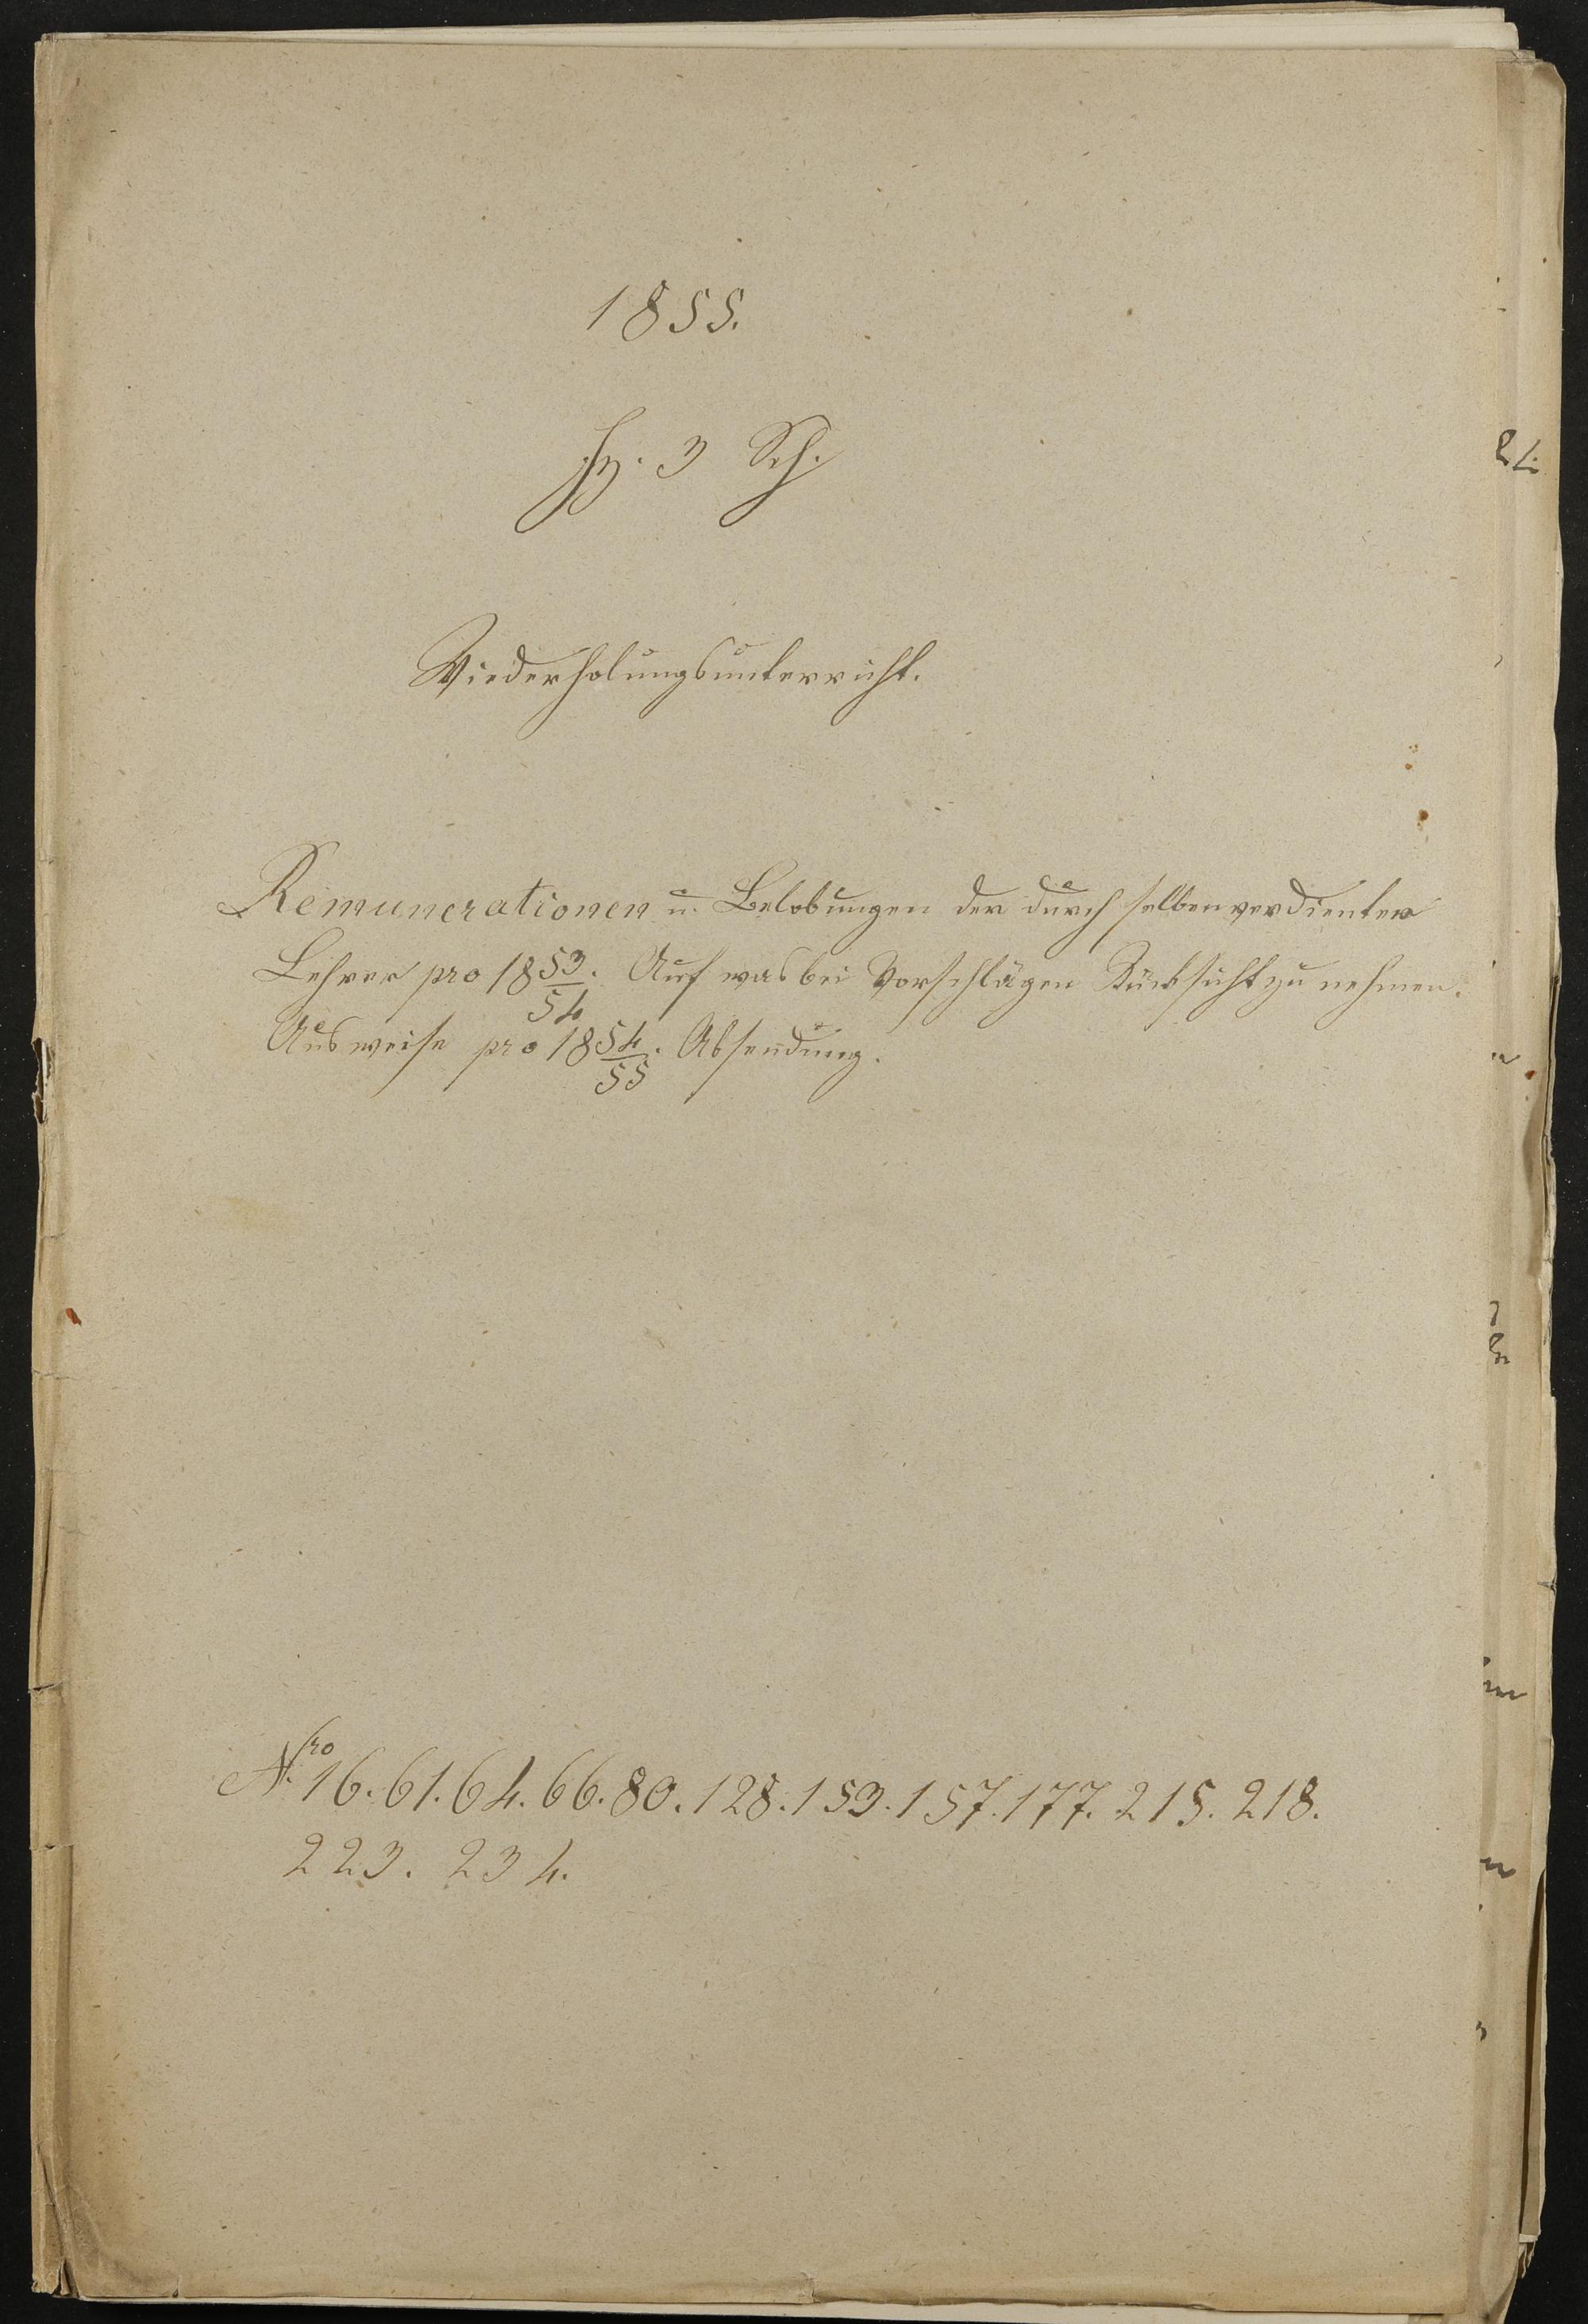 1855.
3 Sch.
Wiederholungsunterricht.
Remunerationen u. Belobungen der durch selben verdienten
Lehrer pro 1853/54. Auf was bei Vorschlägen Rücksicht zu nehmen.
Ausweise pro 1854/55. Absendung.
Nro 16. 61. 64. 66. 80. 128. 153. 157. 177. 215. 218.
223. 234.